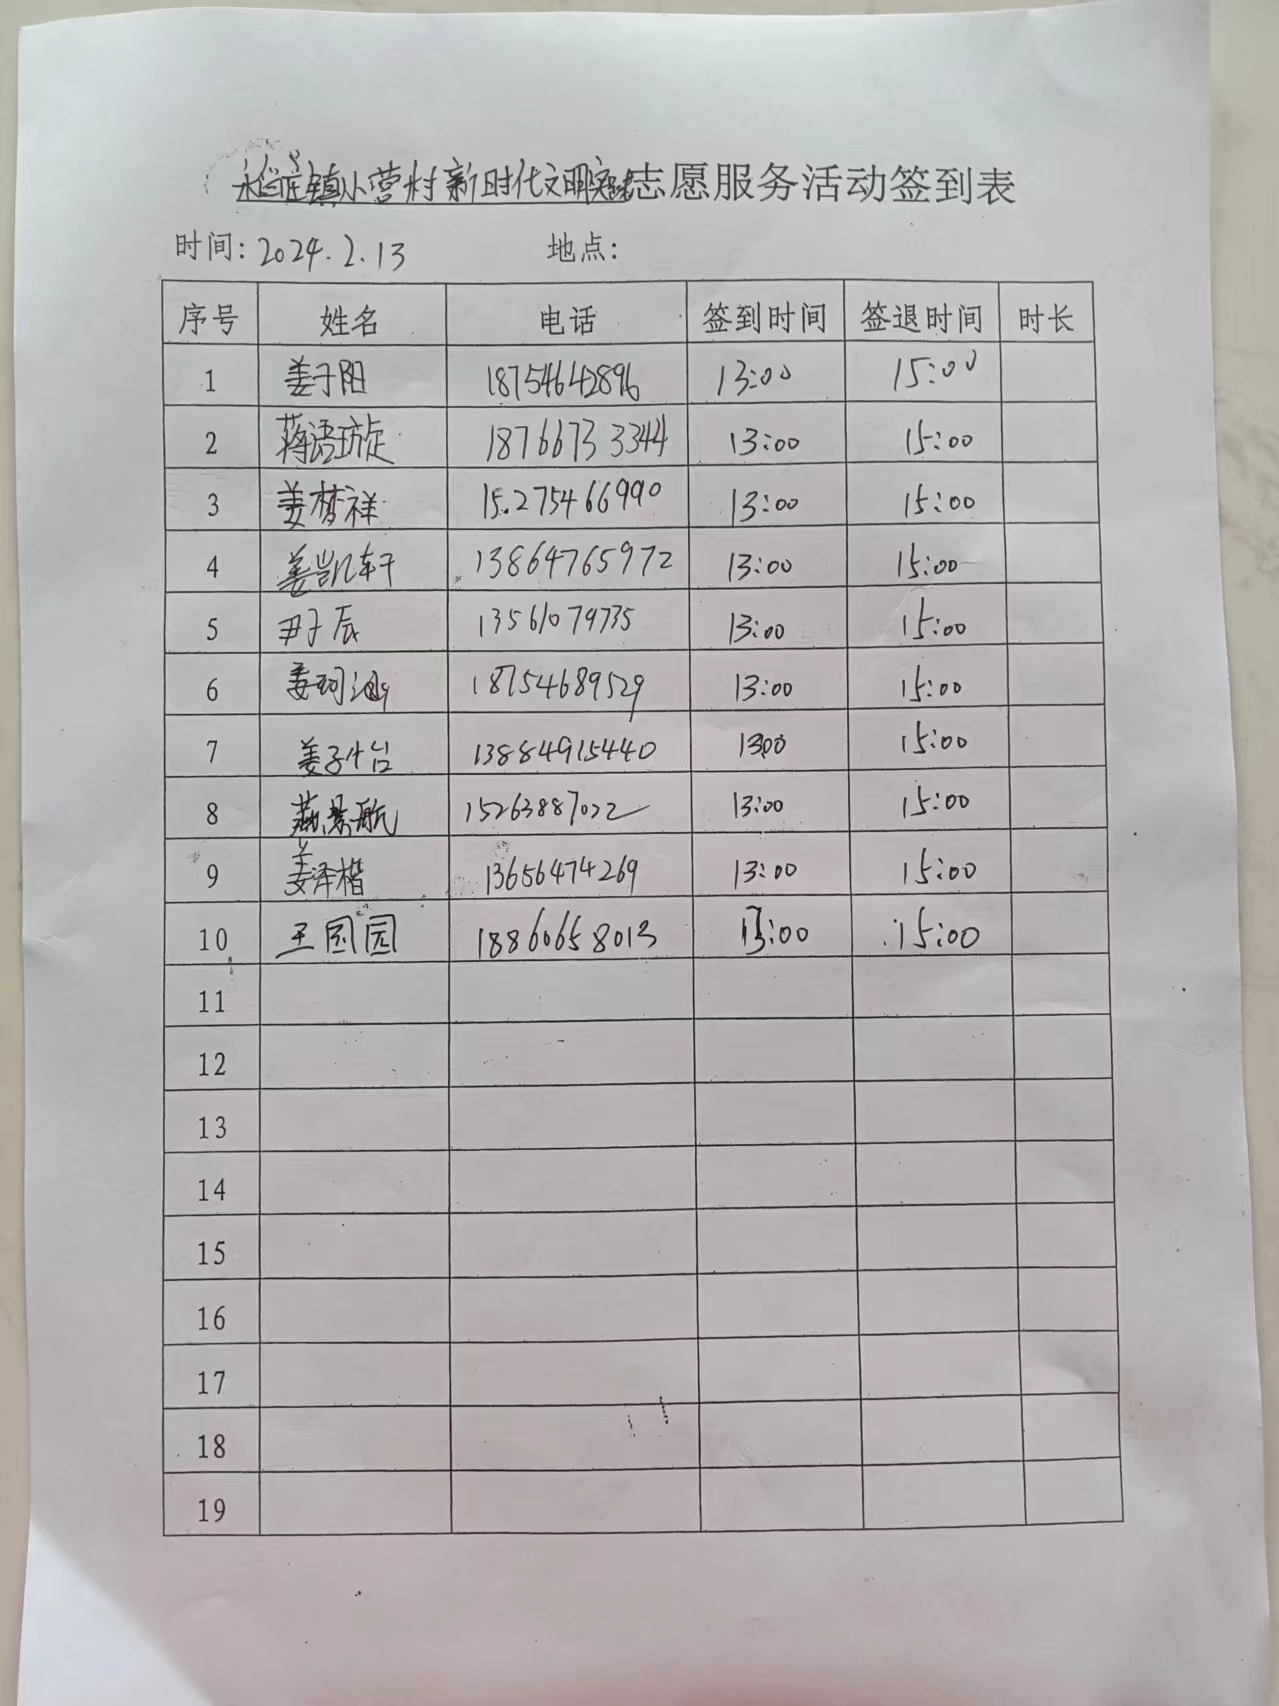 稻庄镇小营村新时代文明实践志愿服务活动签到表
时间: 2024.2.13 地点:
序号 姓名 电话 签到时间 签退时间 时长
1 姜子阳 18754642896 13:00 15:00
2 蒋语旋 18766733344 13:00 15:00
3 姜梦祥 15275466990 13:00 15:00
4 姜凯轩 13864765972 13:00 15:00
5 尹子辰 13561079735 13:00 15:00
6 姜珂 18754689529 13:00 15:00
7 姜子怡 13884915440 1300 15:00
8 燕景航 15263887022 13:00 15:00
9 姜泽楷 13656474269 13:00 15:00
10 王国园 18860658013 13:00 15:00
11
12
13
14
15
16
17
18
19